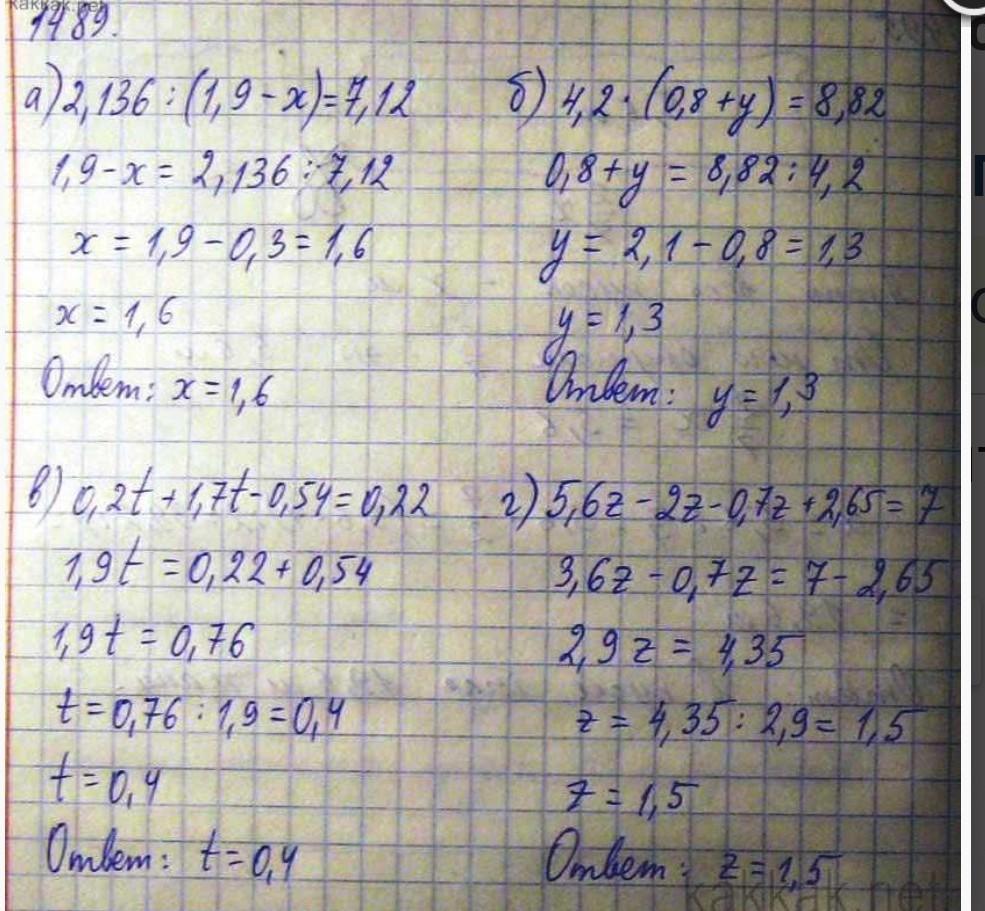 kakkak.net
1489.
а) 2,136 : (1,9 - x) = 7,12
1,9 - x = 2,136 : 7,12
x = 1,9 - 0,3 = 1,6
x = 1,6
Ответ: x = 1,6
б) 4,2 · (0,8 + y) = 8,82
0,8 + y = 8,82 : 4,2
y = 2,1 - 0,8 = 1,3
y = 1,3
Ответ: y = 1,3
в) 0,2t + 1,7t - 0,54 = 0,22
1,9t = 0,22 + 0,54
1,9t = 0,76
t = 0,76 : 1,9 = 0,4
t = 0,4
Ответ: t = 0,4
г) 5,6z - 2z - 0,7z + 2,65 = 7
3,6z - 0,7z = 7 - 2,65
2,9z = 4,35
z = 4,35 : 2,9 = 1,5
z = 1,5
Ответ: z = 1,5
kakkak.net